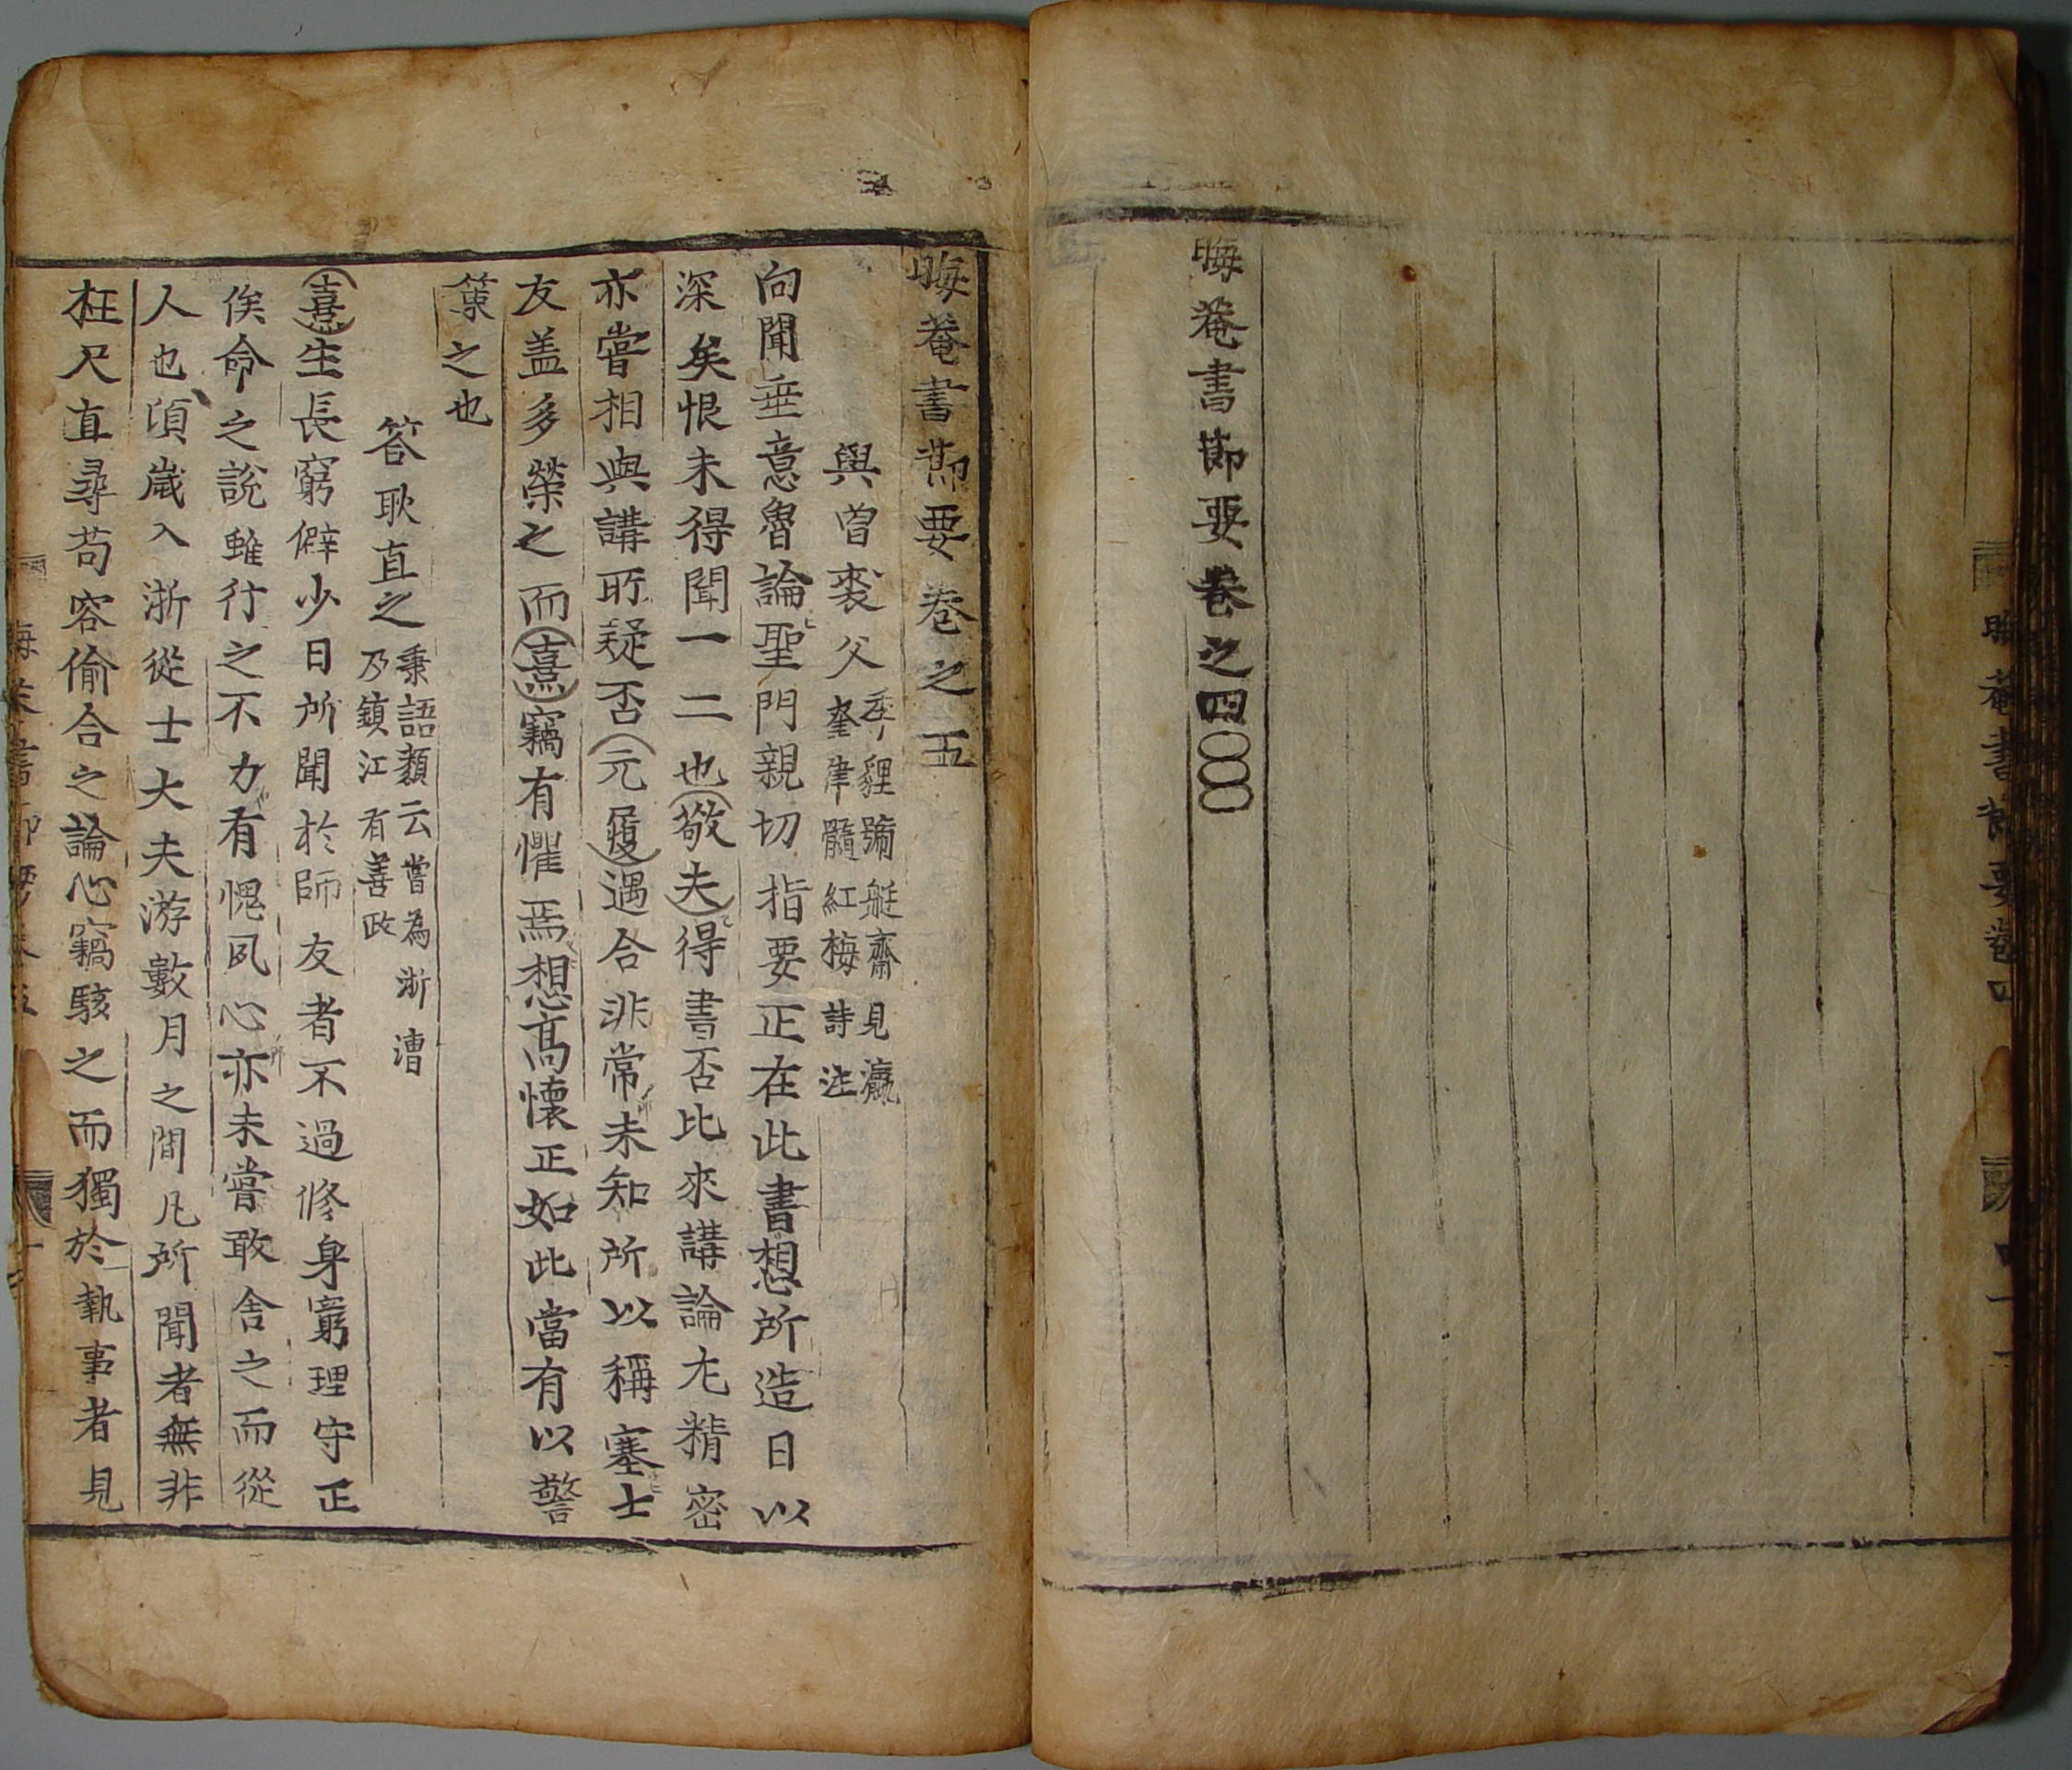 晦菴書節要卷四
晦菴書莭要卷之四
晦菴書莭要卷之五
與曾裘父季貍號艇齋見瀛
奎律髓紅梅詩注
向聞垂意魯論聖門親切指要正在此書想所造日以
深矣恨未得聞一二也敬夫得書否比來講論尤精密
亦嘗相與講所疑否元履遇合非常未知所以稱塞士
友盖多榮之而熹竊有懼焉想高懷正如此當有以警
策之也
答耿直之秉語類云嘗為浙漕
乃鎮江有善政
熹生長窮僻少日所聞於師友者不過修身窮理守正
俟命之說雖行之不力有愧夙心亦未嘗敢舍之而從
人也頃歲入浙從士大夫游數月之間凡所聞者無非
枉尺直尋苟容偷合之論心竊駭之而獨於執事者見